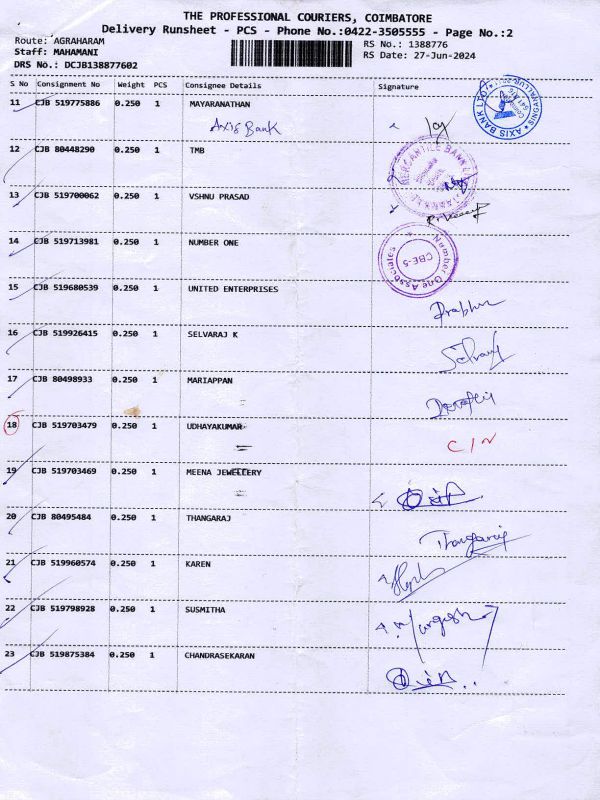 THE PROFESSIONAL COURIERS, COIMBATORE
Delivery Runsheet - PCS - Phone No.:0422-3505555 - Page No.:2
Route: AGRAHARAM
RS No.: 1388776
Staff: MAHAMANI
RS Date: 27-Jun-2024
DRS No.: DCJB138877602
S No Consignment No Weight PCS Consignee Details Signature
11 CJB 519775886 0.250 1 MAYARANATHAN
Axis Bank
AXIS BANK LTD
12 CJB 80448290 0.250 1 TMB
MERCANTILE BANK
13 CJB 519700062 0.250 1 VSHNU PRASAD
14 CJB 519713981 0.250 1 NUMBER ONE
Number One Associates
CBE-5
15 CJB 519680539 0.250 1 UNITED ENTERPRISES
Prabhu
16 CJB 519926415 0.250 1 SELVARAJ K
Selvaraj
17 CJB 80498933 0.250 1 MARIAPPAN
18 CJB 519703479 0.250 1 UDHAYAKUMAR
C/N
19 CJB 519703469 0.250 1 MEENA JEWELLERY
20 CJB 80495484 0.250 1 THANGARAJ
Thangaraj
21 CJB 519960574 0.250 1 KAREN
22 CJB 519798928 0.250 1 SUSMITHA
23 CJB 519875384 0.250 1 CHANDRASEKARAN